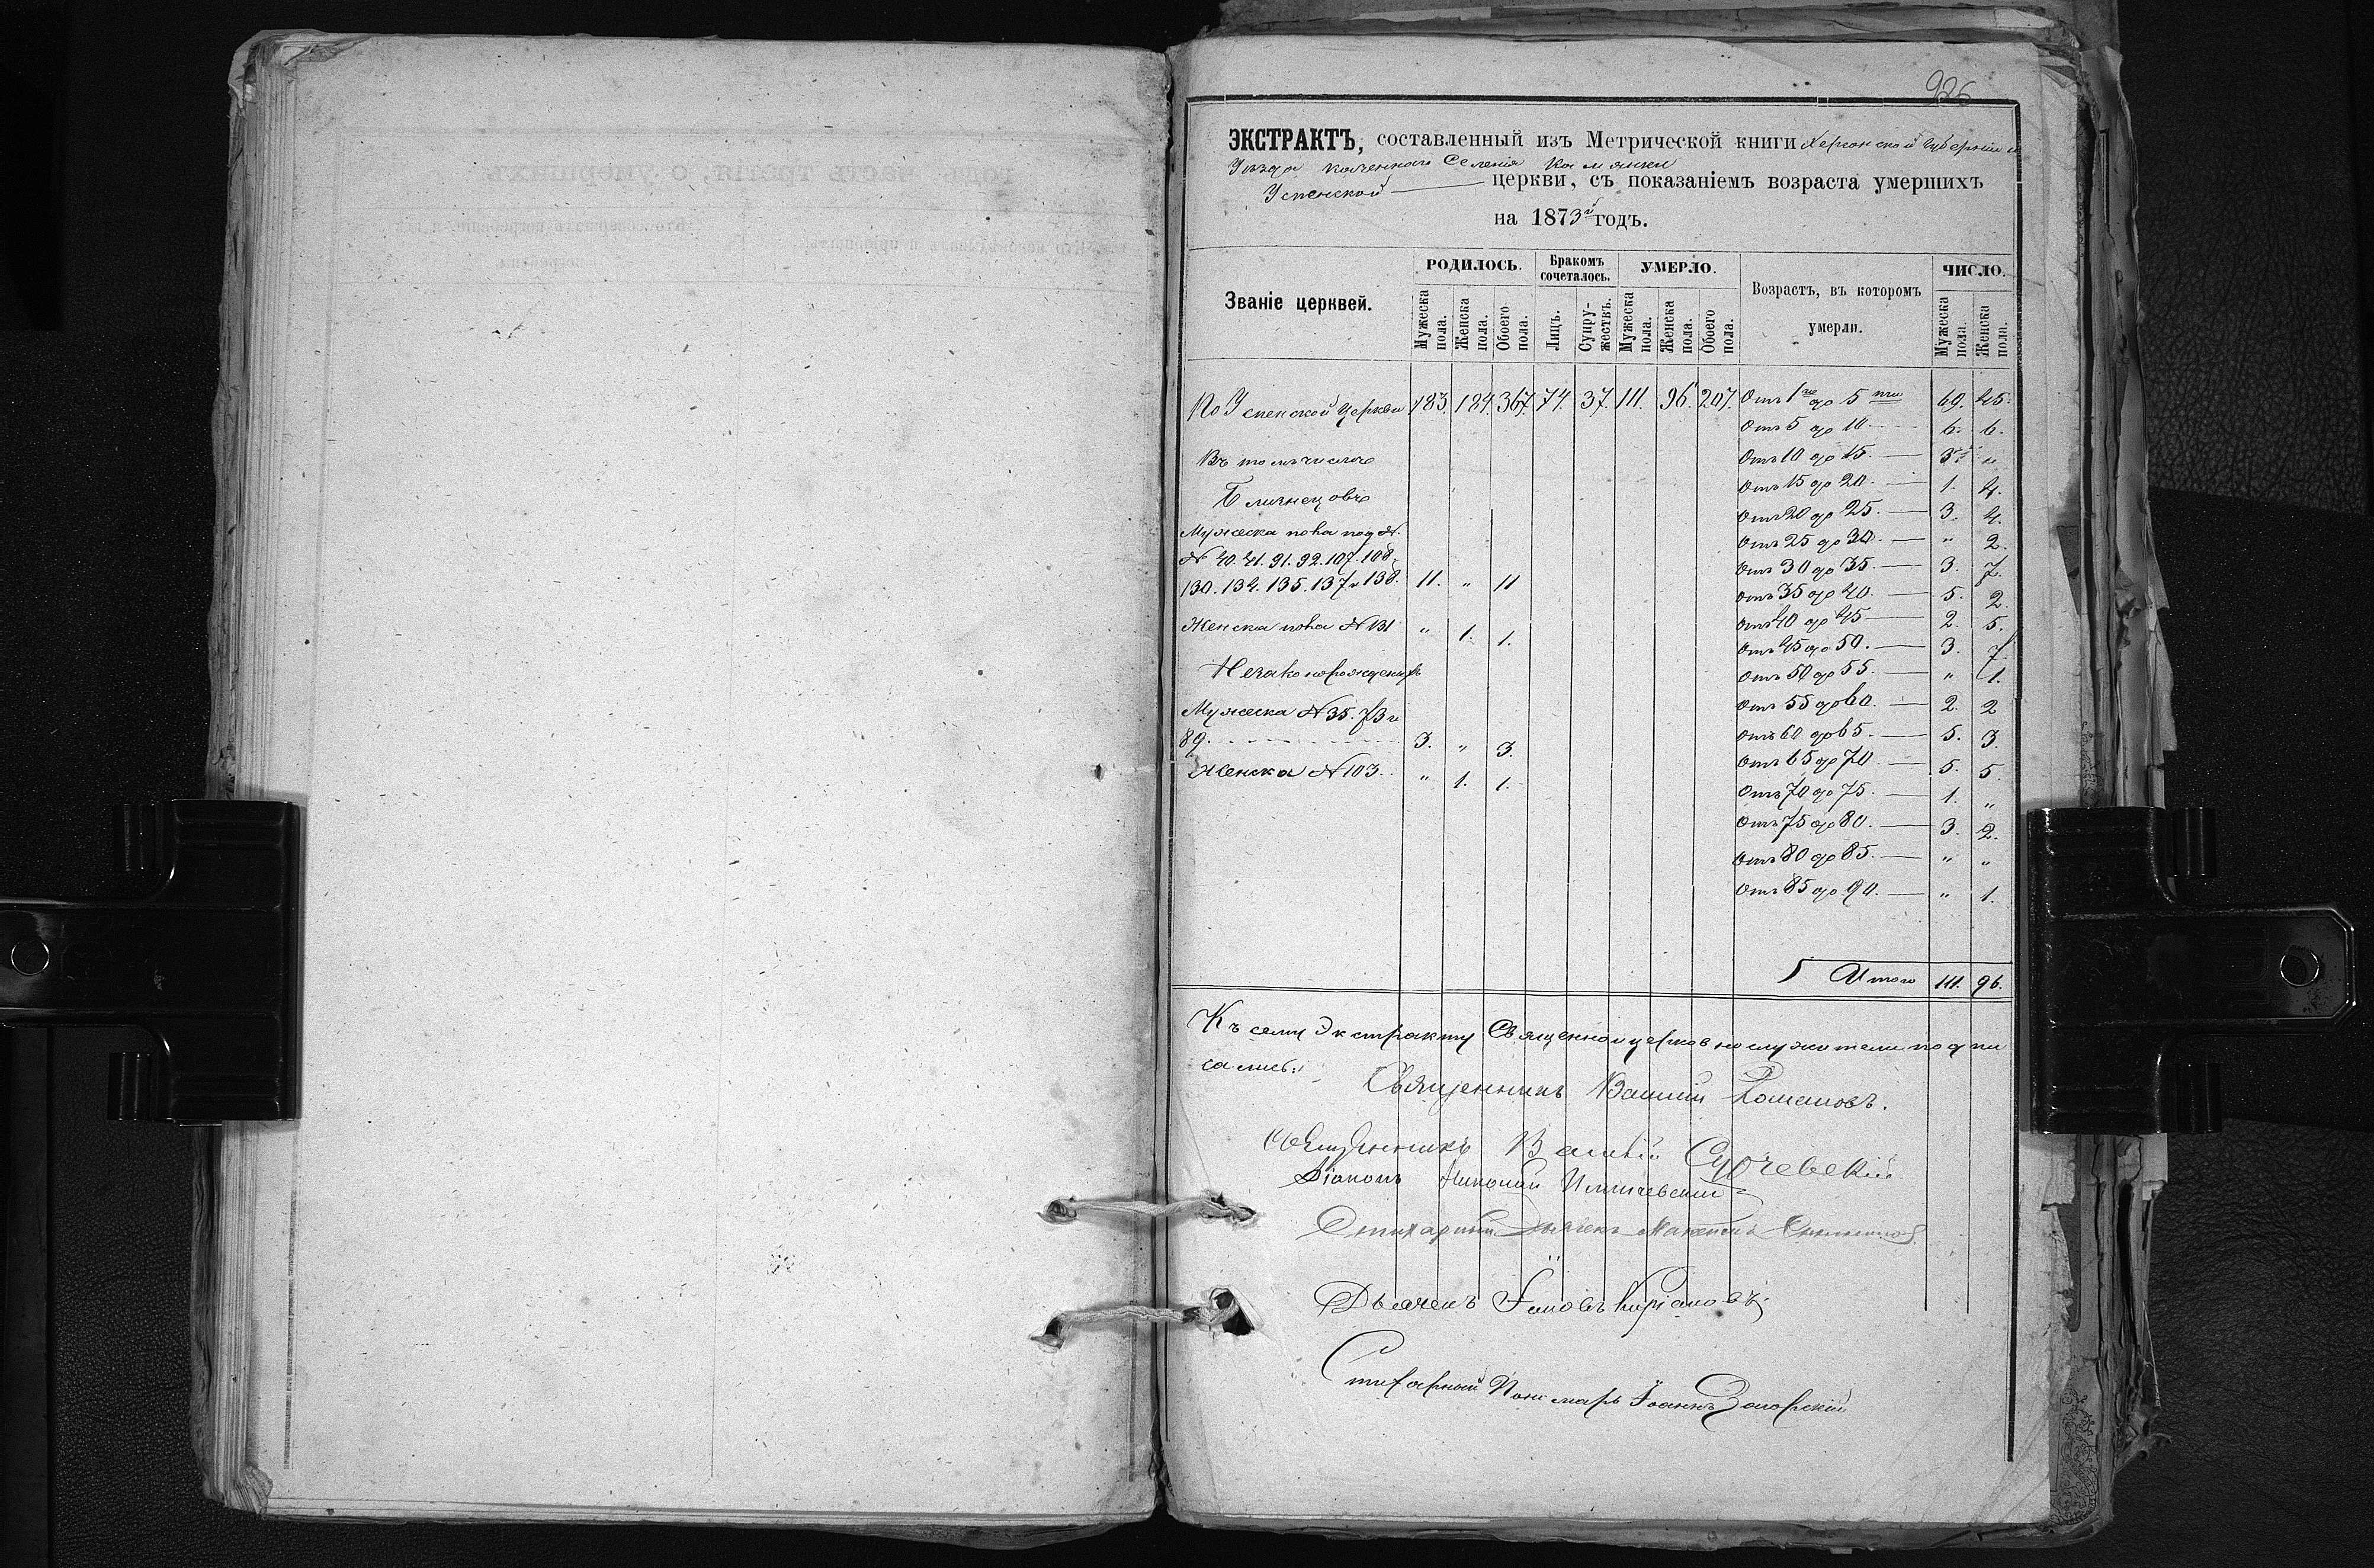 926
ЭКСТРАКТЪ, составленный изъ Метрической книги Херсонской Губерніи и
Уѣзда казеннаго Селенія Камянки
Успенской церкви, съ показаніемъ возраста умершихъ
на 1873й годъ.
Званіе церквей. РОДИЛОСЬ. Бракомъ сочеталось. УМЕРЛО. Возрастъ, въ котором умерли. ЧИСЛО.
Мужеска пола. Женска пола. Обоего пола. Лицъ. Супружествъ. Мужеска пола. Женска пола. Обоего пола. Мужеска пола. Женска пола.
По Успенской Церкви 183. 184. 367. 74. 37. 111. 96. 207. Отъ 1го до 5 ти 69. 45.
Отъ 5 до 10 6. 6.
Въ томъ числѣ Отъ 10 до 15. — 3. „
Близнецовъ Отъ 15 до 20. — 1. 4.
Отъ 20 до 25. — 3. 4.
Мужеска пола под №. Отъ 25 до 30. — „ 2.
№ 40. 41. 91. 92. 107. 108. Отъ 30 до 35. — 3. 7.
130. 134. 135. 137 и 138. 11. „ 11 Отъ 35 до 40. — 5. 2.
Женска пола № 131 „ 1. 1. Отъ 40 до 45 — 2. 5.
Отъ 45 до 50. — 3. 7.
Незаконорожденыхъ Отъ 50 до 55. — „ 1.
Мужеска № 35. 73 и Отъ 55 до 60. — 2. 2
89. 3. „ 3. Отъ 60 до 65. — 5. 3.
Женска № 103. „ 1. 1. Отъ 65 до 70. — 5. 5.
Отъ 70 до 75. — 1. „
Отъ 75 до 80. — 3. 2.
Отъ 80 до 85. — „ „
Отъ 85 до 90. — „ 1.
Итого 111. 96.
Къ сему Экстракту Священноицерковнослужители подпи
сались:
Священникъ Василій Романовъ.
Священникъ Василій
Діаконъ Николай
Стихарный Дьячекъ Максимъ
Дьячекъ Іаковъ Киріаковъ
Стихарный Пономарь Іоаннъ